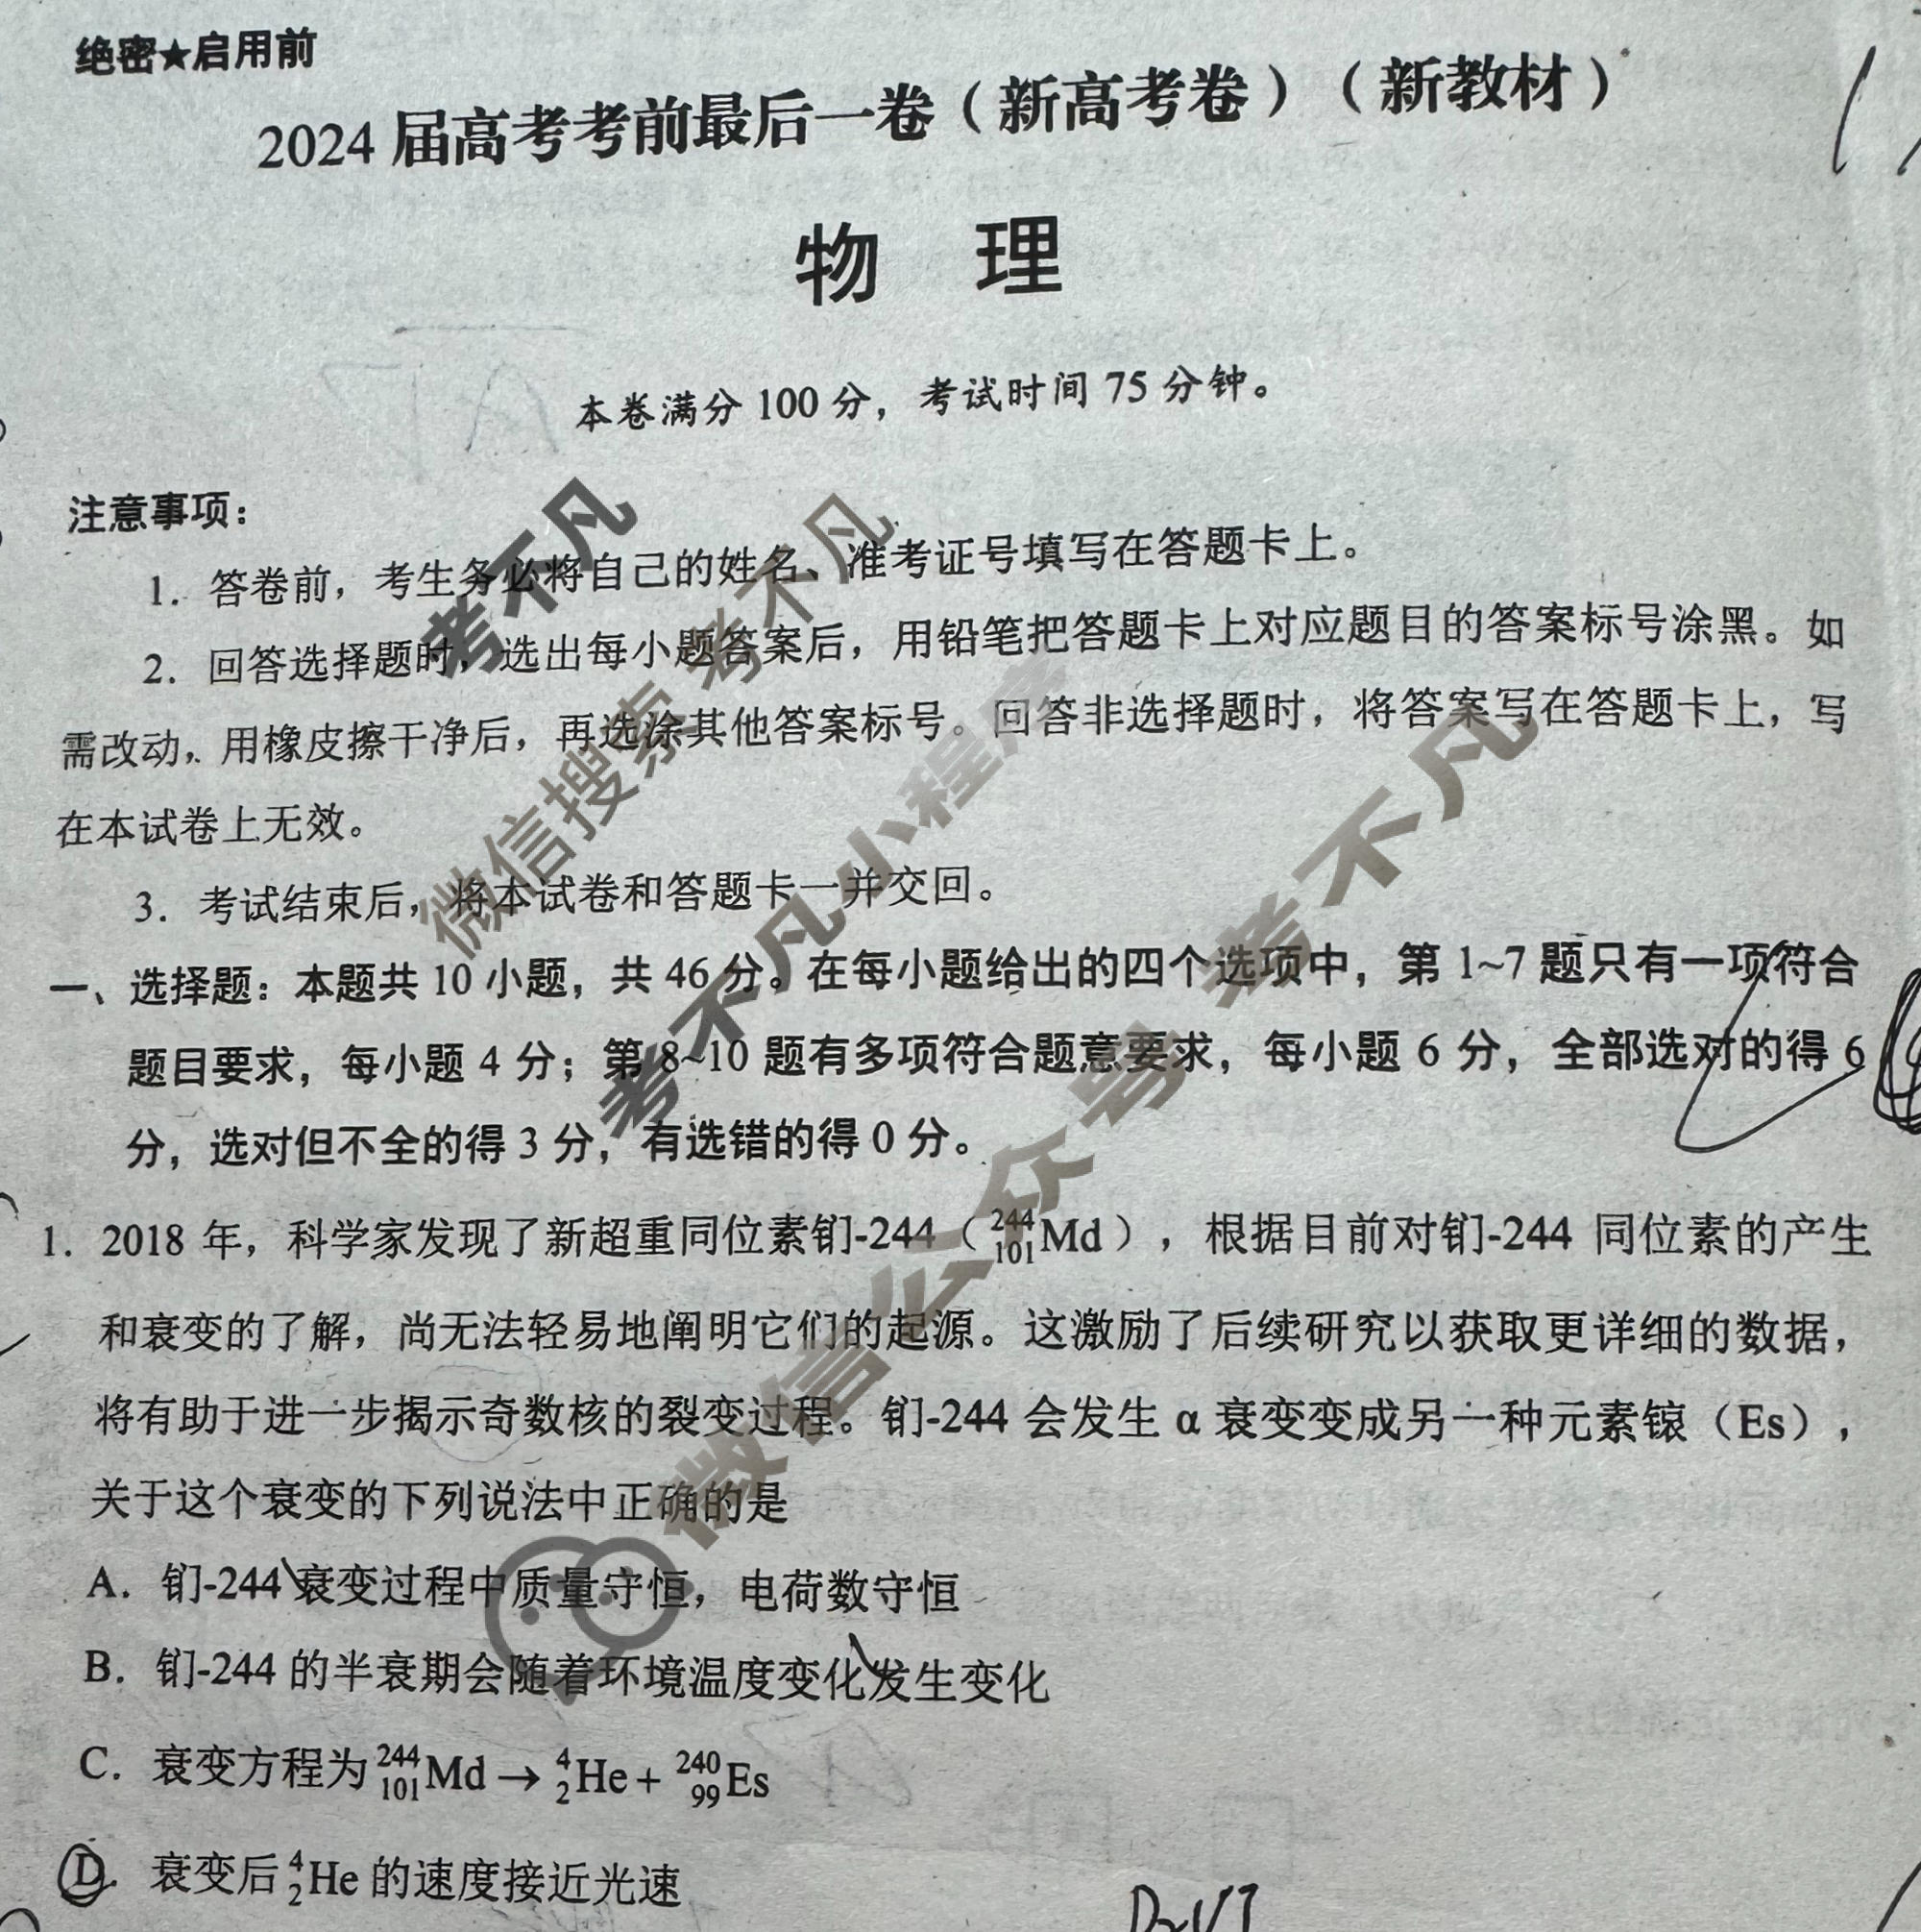 绝密★启用前
2024 届高考考前最后一卷（新高考卷）（新教材）
物 理
本卷满分 100 分，考试时间 75 分钟。
注意事项：
1. 答卷前，考生务必将自己的姓名、准考证号填写在答题卡上。
2. 回答选择题时，选出每小题答案后，用铅笔把答题卡上对应题目的答案标号涂黑。如
需改动，用橡皮擦干净后，再选涂其他答案标号。回答非选择题时，将答案写在答题卡上，写
在本试卷上无效。
3. 考试结束后，将本试卷和答题卡一并交回。
一、选择题：本题共 10 小题，共 46 分。在每小题给出的四个选项中，第 1~7 题只有一项符合
题目要求，每小题 4 分；第 8~10 题有多项符合题意要求，每小题 6 分，全部选对的得 6
分，选对但不全的得 3 分，有选错的得 0 分。
1. 2018 年，科学家发现了新超重同位素钔-244（²⁴⁴₁₀₁Md），根据目前对钔-244 同位素的产生
和衰变的了解，尚无法轻易地阐明它们的起源。这激励了后续研究以获取更详细的数据，
将有助于进一步揭示奇数核的裂变过程。钔-244 会发生 α 衰变变成另一种元素锿（Es），
关于这个衰变的下列说法中正确的是
A. 钔-244 衰变过程中质量守恒，电荷数守恒
B. 钔-244 的半衰期会随着环境温度变化发生变化
C. 衰变方程为 ²⁴⁴₁₀₁Md → ⁴₂He + ²⁴⁰₉₉Es
D. 衰变后 ⁴₂He 的速度接近光速
考不凡
微信搜索 考不凡
考不凡小程序
微信公众号 考不凡